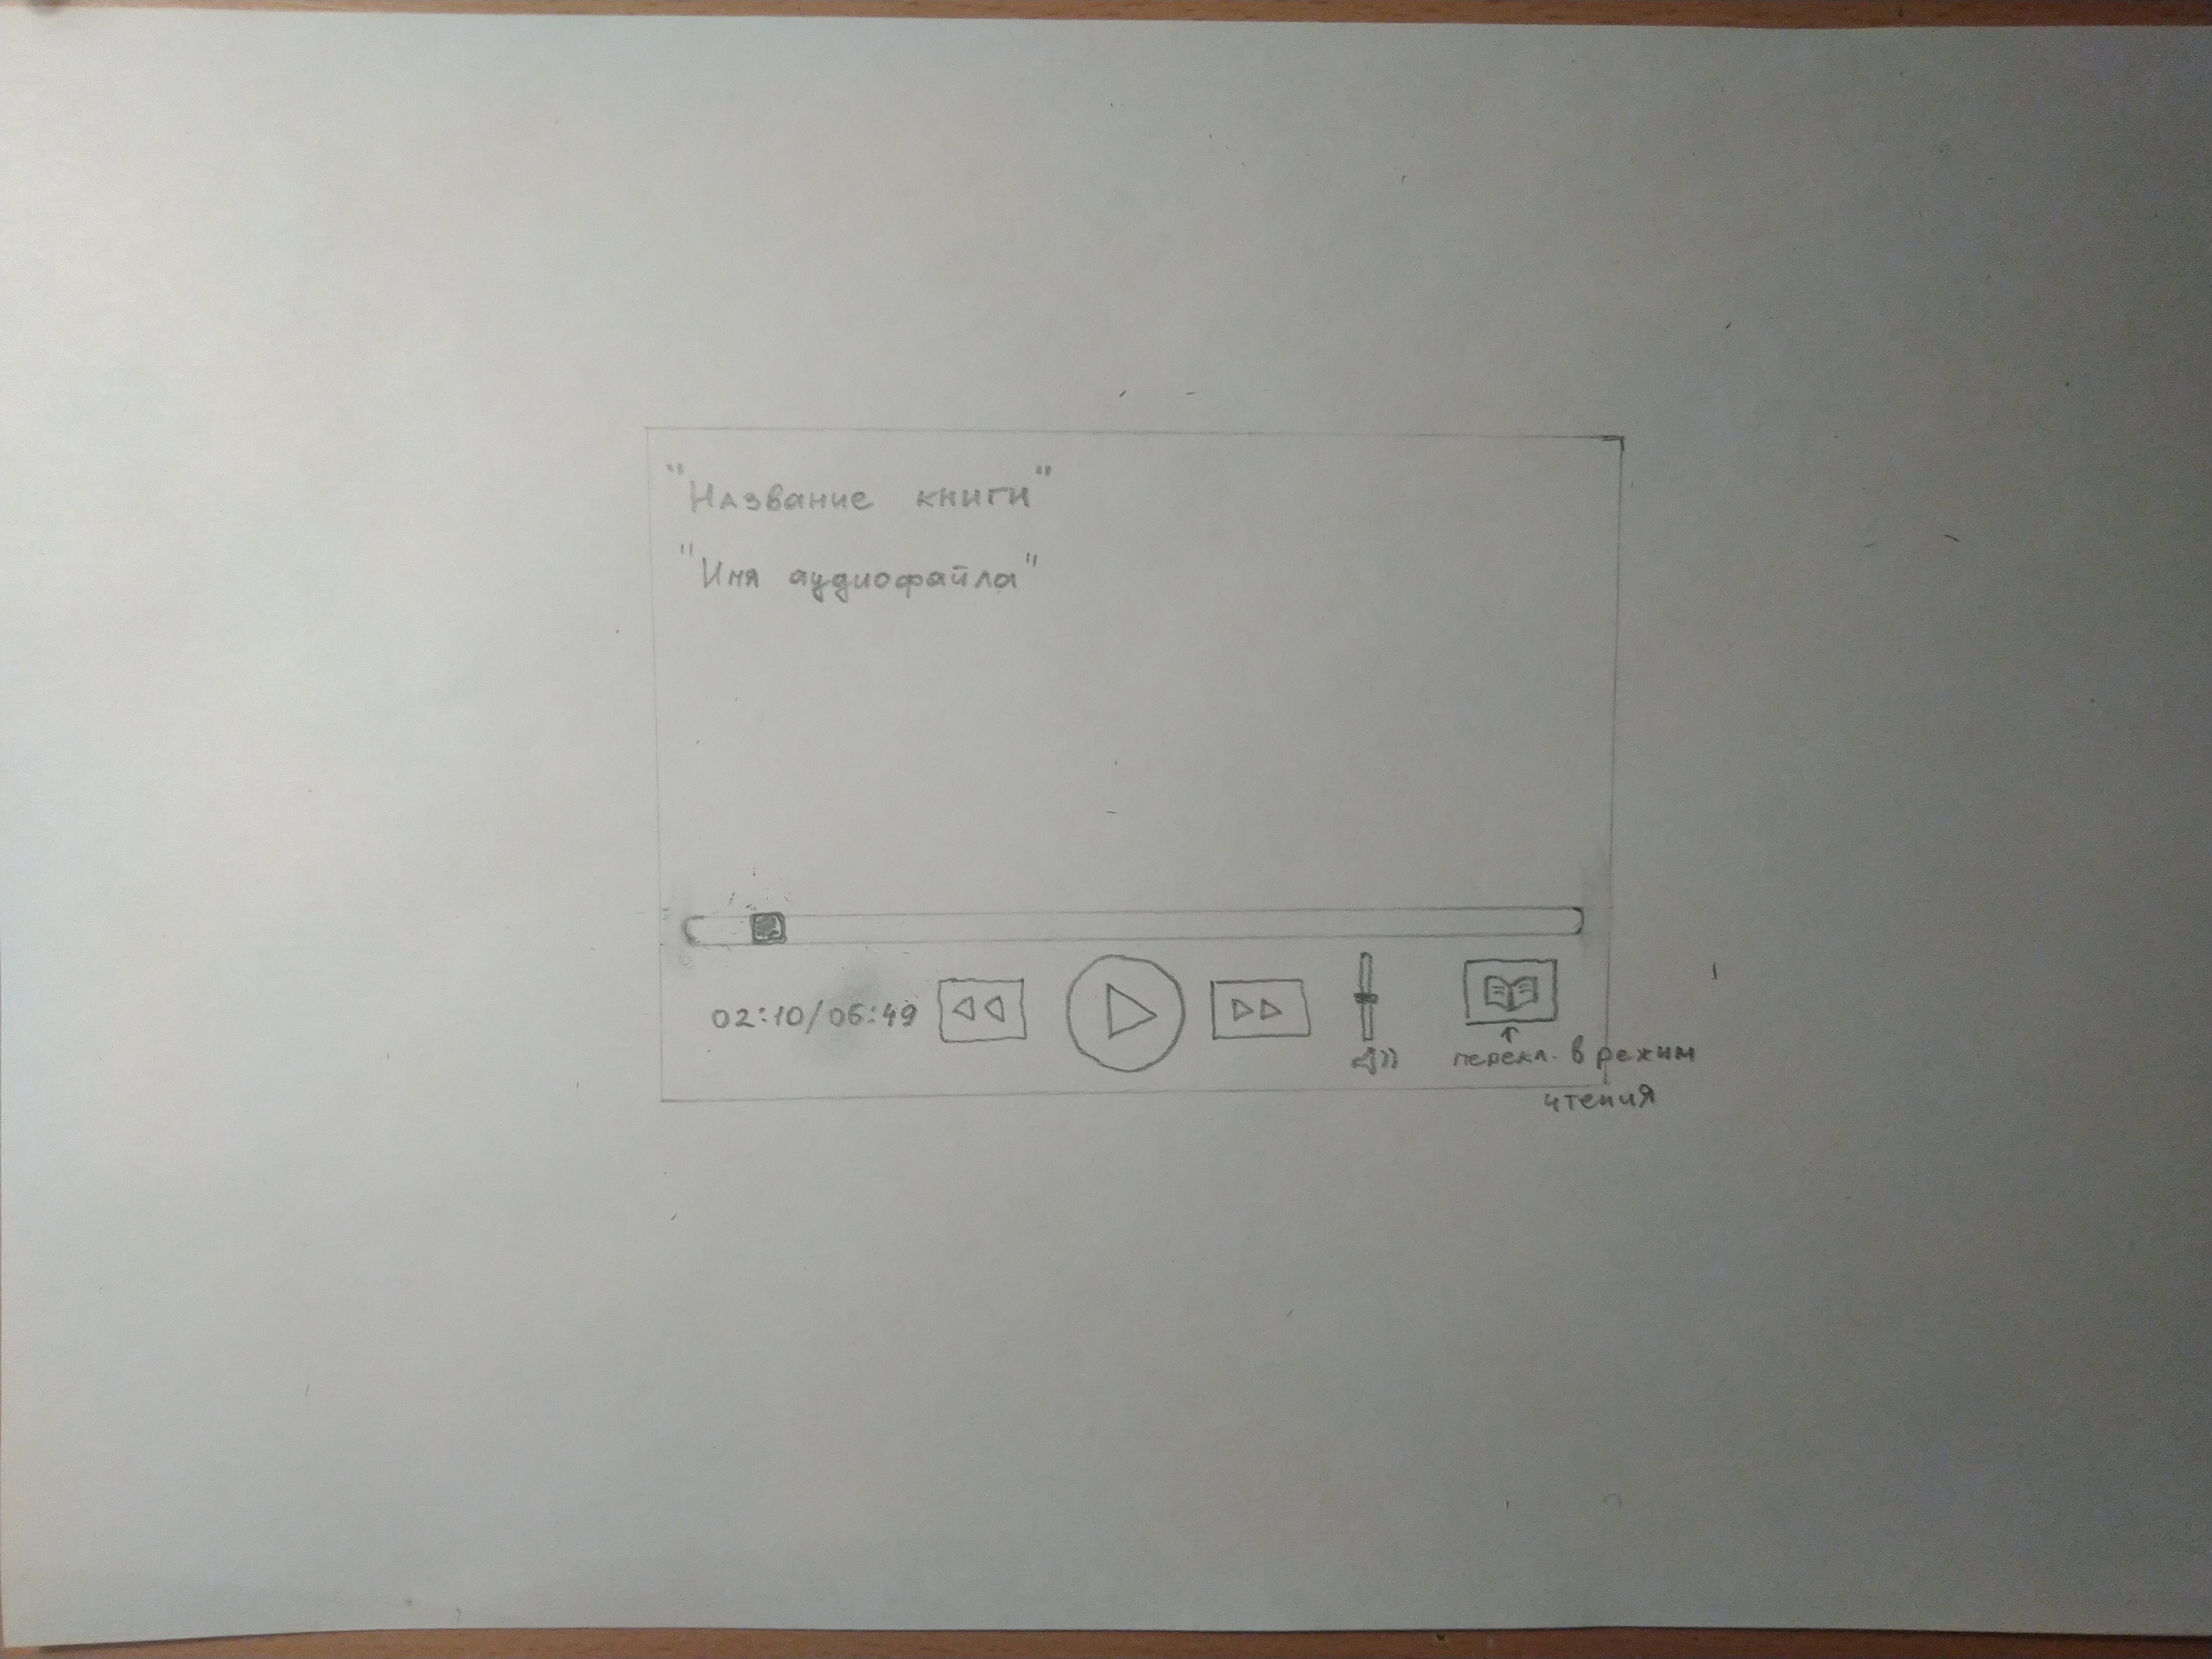 "Название книги"
"Имя аудиофайла"
02:10/06:49
перекл. в режим
чтения